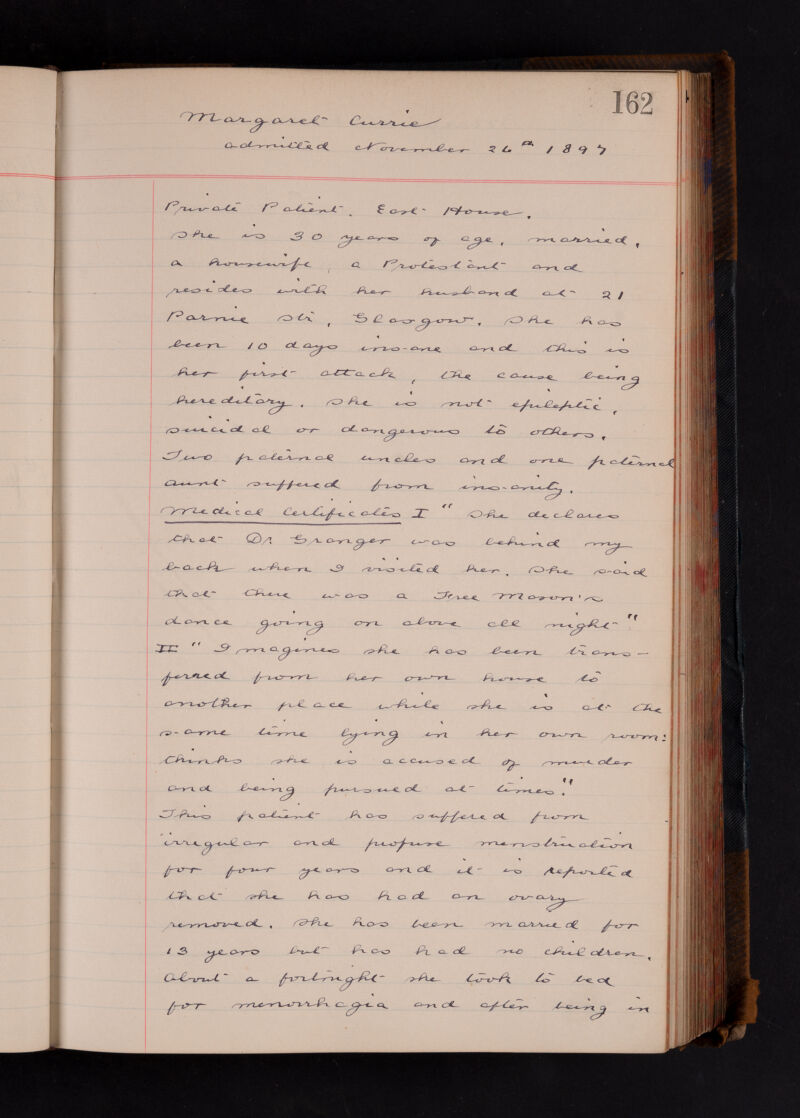 162
Margaret Currie
admitted November 26th 1897
Private Patient. East House.
She is 30 years of age, married,
a housewife, a Protestant and
resides with her husband at 21
Parnie Str, Glasgow. She has
been 10 days insane and this is
her first attack, the cause being
hereditary. She is not epileptic,
suicidal or dangerous to others.
Two paternal uncles and one paternal
aunt suffered from insanity.
Medical Certificates I "She declares
that Dr Granger was behind my
back when I visited her. She said
that there was a Free Mason's
dance going on above all night".
II "Imagines she has been trans-
ferred from her own house to
another place while she is at the
same time lying in her own room:
thinks she is accused of murder
and being pursued at times."
This patient has suffered from
irregular and profuse menstruation
for four years and it is reported
that she has had an ovary
removed. She has been married for
13 years but has had no children.
About a fortnight she took to bed
for menorrhagia and after being in